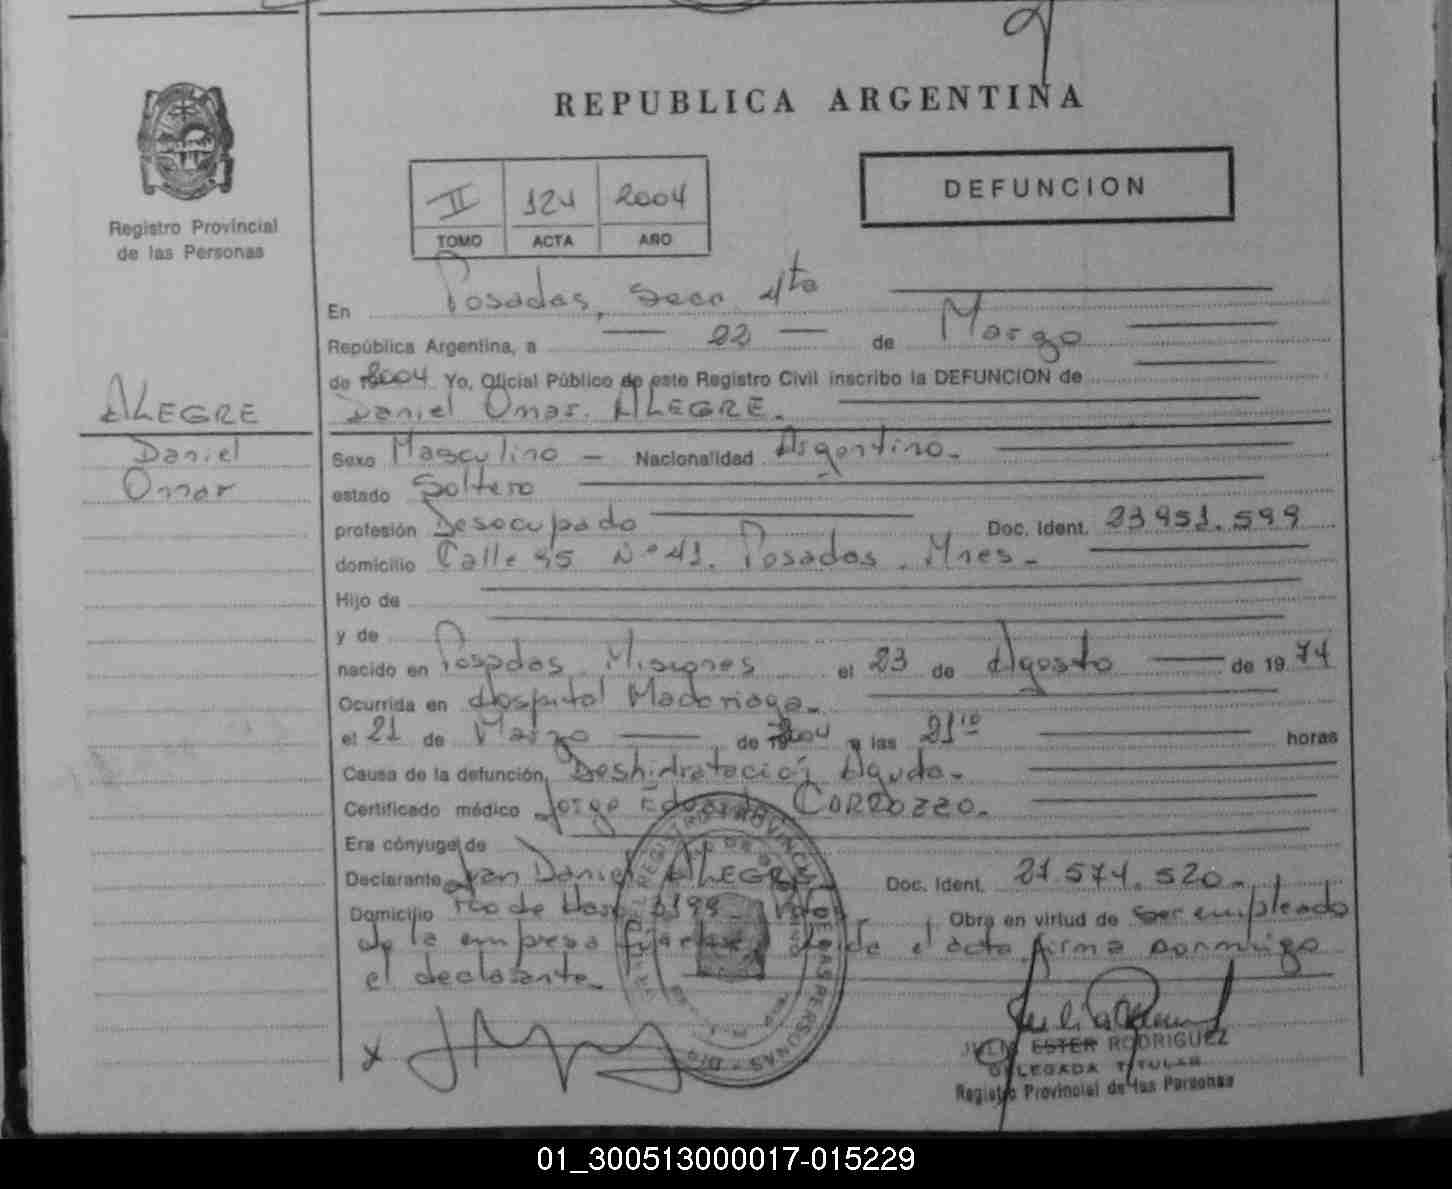 REPUBLICA ARGENTINA
Registro Provincial
de las Personas
II 124 2004
TOMO ACTA AÑO
DEFUNCION
ALEGRE
Daniel
Omar
En Posadas, Secc 4ta
República Argentina, a 22 de Marzo
de 2004 Yo, Oficial Público de este Registro Civil inscribo la DEFUNCION de
Daniel Omar. ALEGRE.
Sexo Masculino — Nacionalidad Argentino.
estado Soltero
profesión Desocupado Doc. Ident. 23951.599
domicilio Calle 95 Nº 41. Posadas. Mnes.
Hijo de
y de
nacido en Posadas Misiones el 23 de Agosto de 1974
Ocurrida en Hospital Madariaga.
el 21 de Marzo de 2004 a las 21¹⁰ horas
Causa de la defunción Deshidratación Aguda.
Certificado médico Jorge Eduardo CARDOZZO.
Era cónyuge de
Declarante Juan Daniel ALEGRE Doc. Ident. 21.574.520.
Domicilio Obra en virtud de ser empleado
de la empresa el acta firma conmigo
el declarante.
REGISTRO PROVINCIAL DE LAS PERSONAS
x
JULIA ESTER RODRIGUEZ
DELEGADA TITULAR
Registro Provincial de las Personas
01_300513000017-015229